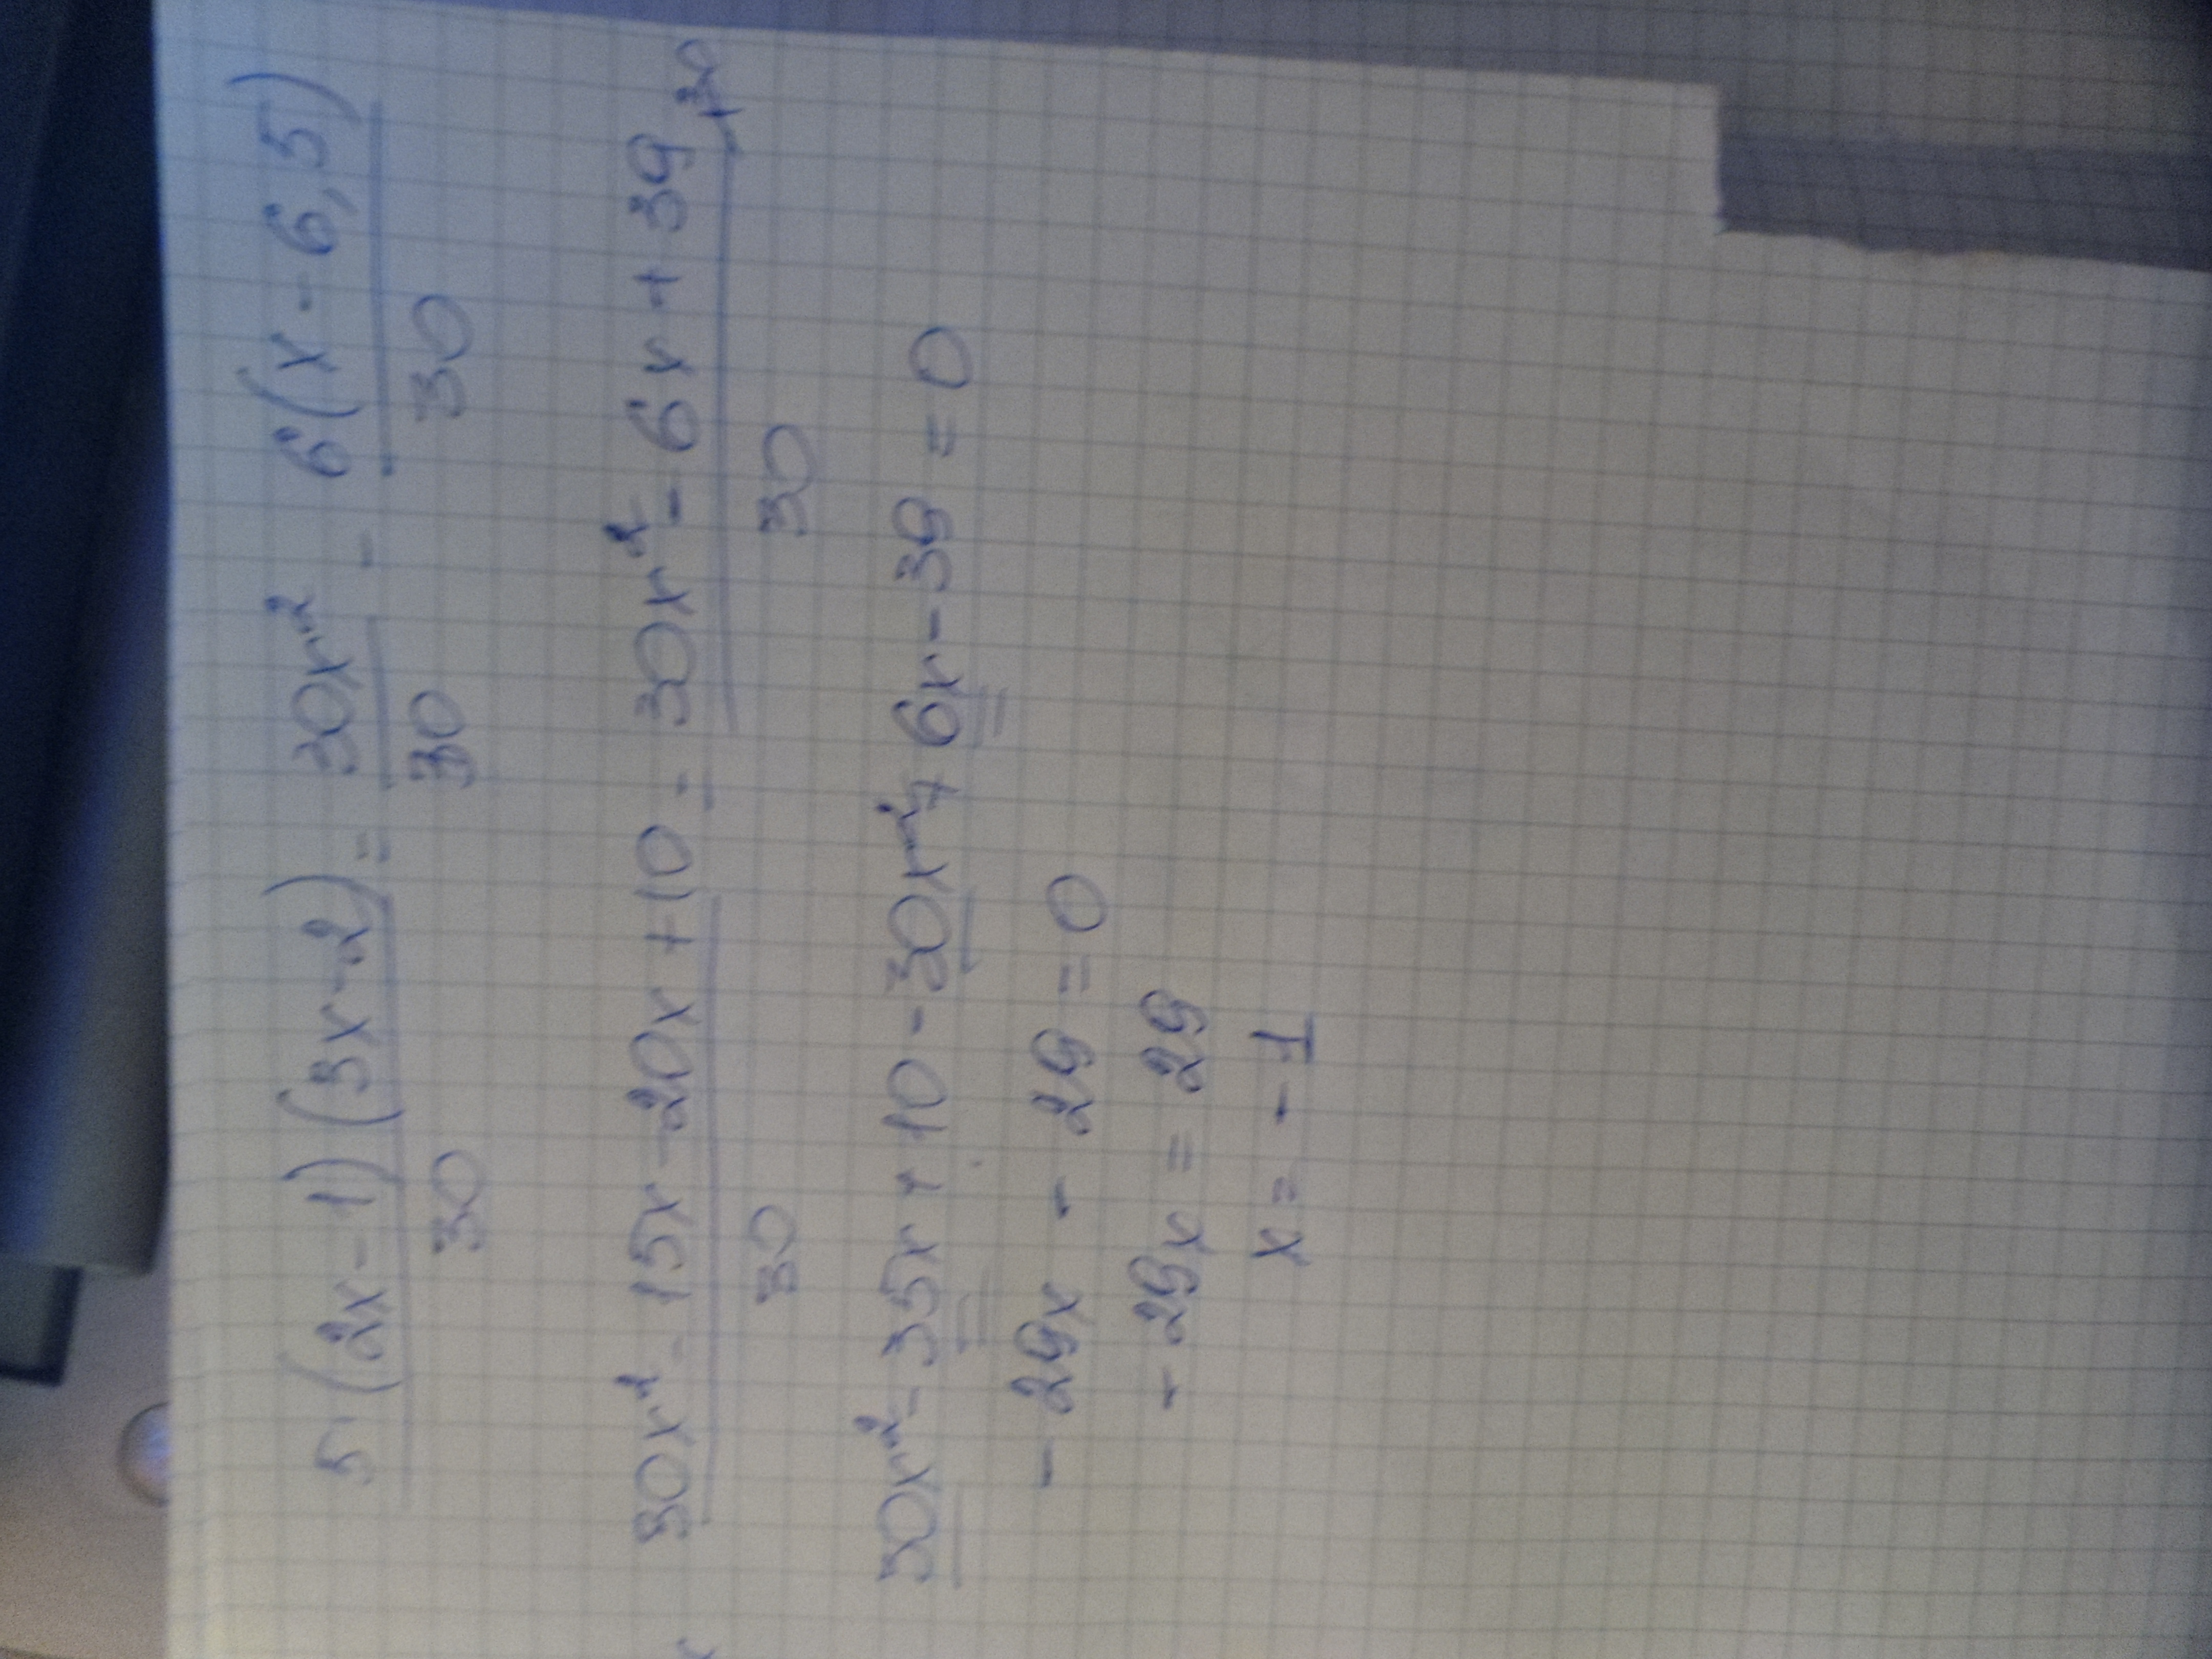 5·(2x-1)(3x-2)/30 = 30x²/30 - 6(x-6,5)/30
30x²-15x-20x+10/30 = 30x²-6x+39/30 |·30
30x²-35x+10-30x²+6x-39=0
-29x-29=0
-29x=29
x=-1